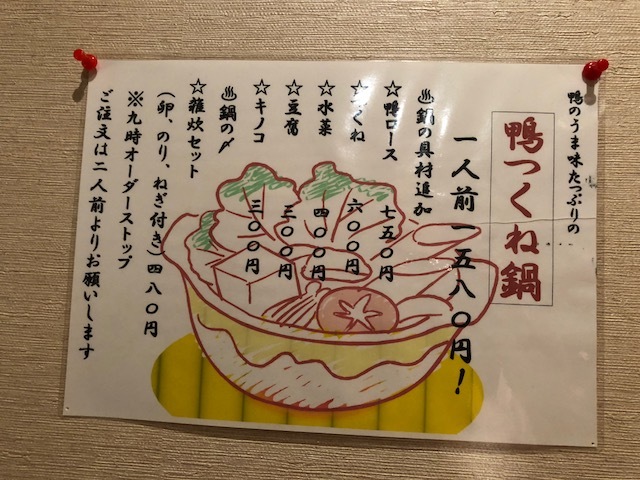 鴨のうま味たっぷりの
鴨つくね鍋
一人前一五八〇円！
♨鍋の具材追加
☆鴨ロース 七五〇円
☆つくね 六〇〇円
☆水菜 四〇〇円
☆豆腐 三〇〇円
☆キノコ 三〇〇円
♨鍋の〆
☆雑炊セット
（卵、のり、ねぎ付き）四八〇円
※九時オーダーストップ
ご注文は二人前よりお願いします